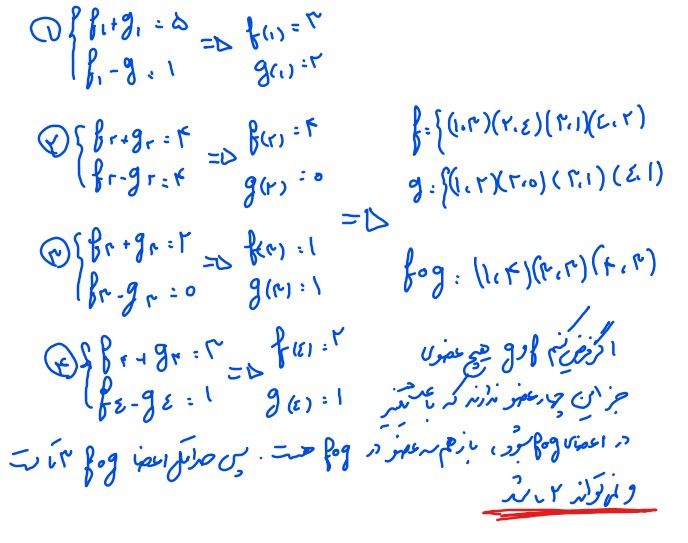 ① { f₁+g₁ = ۵ => f(۱) = ۳
f₁-g₁ = ۱ g(۱) = ۲
② { f۲+g۲ = ۴ => f(۲) = ۴
f۲-g۲ = ۴ g(۲) = ۰
③ { f۳+g۳ = ۲ => f(۳) = ۱
f۳-g۳ = ۰ g(۳) = ۱
④ { f۴+g۴ = ۳ => f(٤) = ۲
f٤-g٤ = ۱ g(٤) = ۱
=> f = {(۱،۳)(۲،٤)(۳،۱)(٤،۲)
g = {(۱،۲)(۲،۰)(۳،۱)(٤،۱)
fog = (۱،۴)(۳،۳)(۴،۳)
اگر فرض کنیم f و g هیچ عضوی
جز این چهار عضو ندارند که باعث تغییر
در اعضای fog بشود، باز هم سه عضو در fog هست. پس حداقل اعضا fog ۳ تا است
و نمی‌تواند ۲ باشد